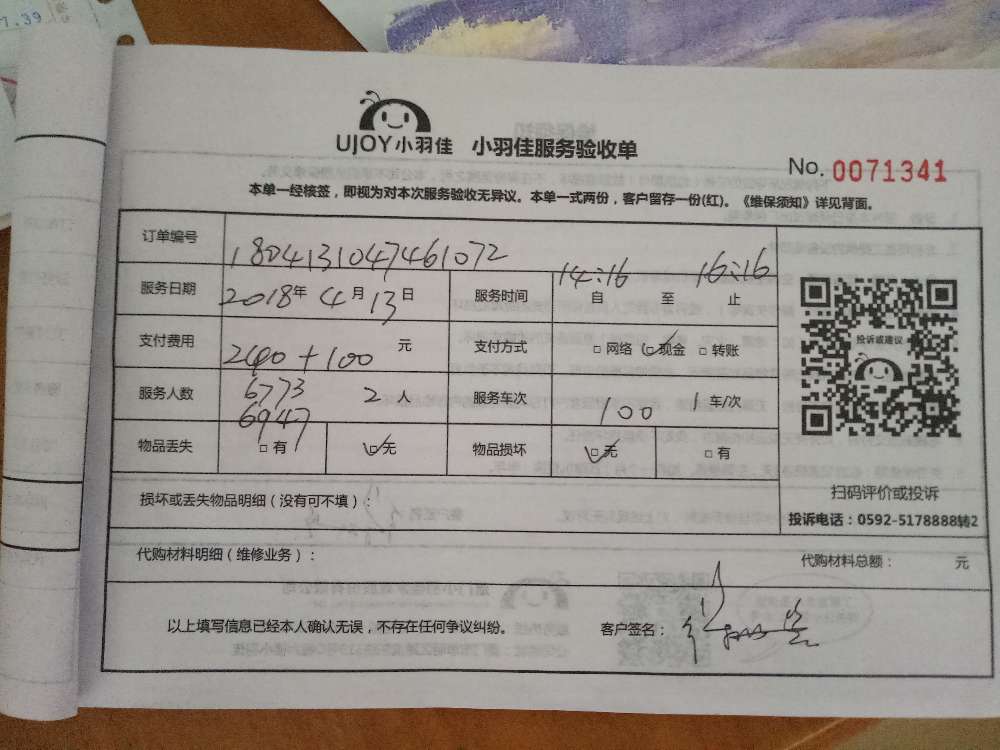 7.39
UJOY小羽佳 小羽佳服务验收单
No. 0071341
本单一经核签，即视为对本次服务验收无异议。本单一式两份，客户留存一份(红)。《维保须知》详见背面。
订单编号 1804131047461072
服务日期 2018年 4月 13日 服务时间 14:16 自 至 16:16 止
支付费用 240+100 元 支付方式 □ 网络 ☑ 现金 □ 转账
投诉或建议
服务人数 6773 6947 2 人 服务车次 100 1 车/次
物品丢失 □ 有 ☑ 无 物品损坏 ☑ 无 □ 有
损坏或丢失物品明细（没有可不填）：
扫码评价或投诉
投诉电话：0592-5178888转2
代购材料明细（维修业务）： 代购材料总额： 元
以上填写信息已经本人确认无误，不存在任何争议纠纷。 客户签名：